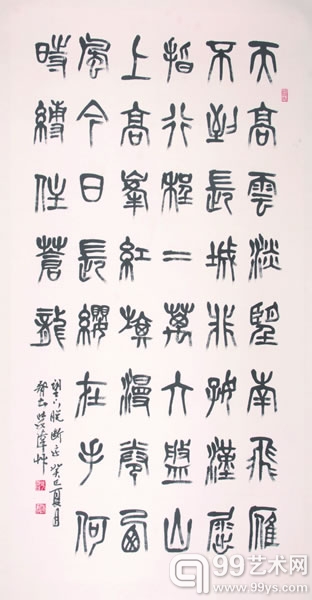 天高雲淡望南飛雁
不到長城非好漢屈
指行程二萬六盤山
上高峯紅旗漫卷西
風今日長纓在手何
時縛住蒼龍
望下脱斷字癸巳夏月
99艺术网
www.99ys.com